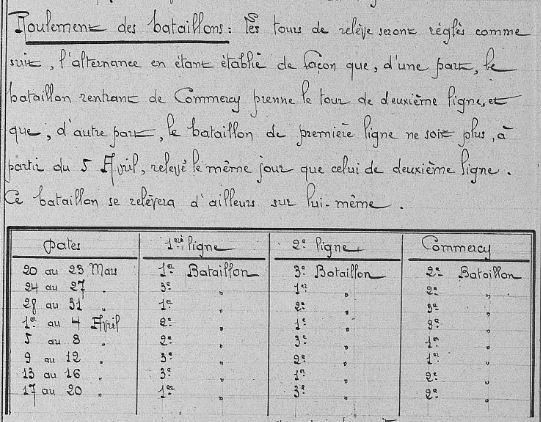 Roulement des bataillons : les tours de relève seront réglés comme
suit, l'alternance en étant établie de façon que, d'une part, le
bataillon rentrant de Commercy prenne le tour de deuxième ligne, et
que, d'autre part, le bataillon de première ligne ne soit plus, à
partir du 5 Avril, relevé le même jour que celui de deuxième ligne.
Ce bataillon se relèvera d'ailleurs sur lui-même.
Dates 1ère ligne 2e ligne Commercy
20 au 23 Mars 1er Bataillon 3e Bataillon 2e Bataillon
24 au 27 " 3e " 1er " 2e "
28 au 31 " 1er " 2e " 3e "
1er au 4 Avril 2e " 1er " 3e "
5 au 8 " 2e " 3e " 1er "
9 au 12 " 3e " 2e " 1er "
13 au 16 " 3e " 1er " 2e "
17 au 20 " 1er " 3e " 2e "